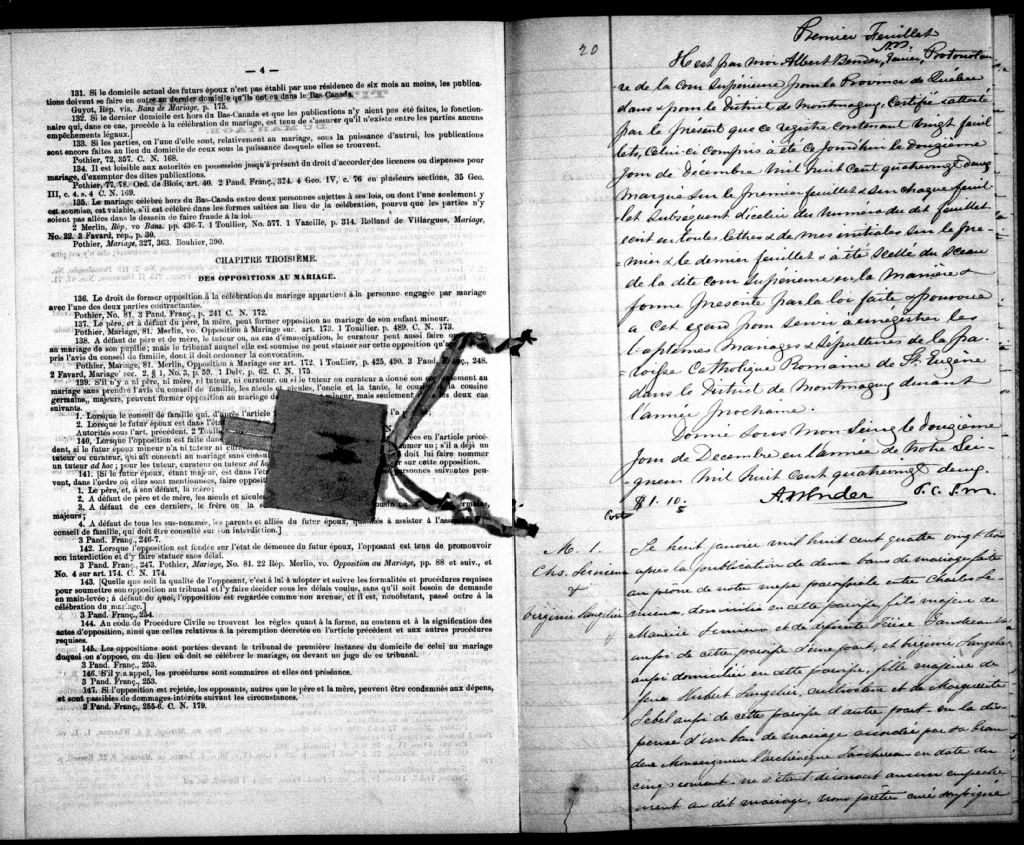 — 4 —
131. Si le domicile actuel des futurs époux n'est pas établi par une résidence de six mois au moins, les publica-
tions doivent se faire en outre au dernier domicile qu'ils ont eu dans le Bas-Canada.
Guyot, Rép. vis. Bans de Mariage, p. 175.
132. Si le dernier domicile est hors du Bas-Canada et que les publications n'y aient pas été faites, le fonction-
naire qui, dans ce cas, procède à la célébration du mariage, est tenu de s'assurer qu'il n'existe entre les parties aucuns
empêchements légaux.]
133. Si les parties, ou l'une d'elles, sont, relativement au mariage, sous la puissance d'autrui, les publications
sont encore faites au lieu du domicile de ceux sous la puissance desquels elles se trouvent.
Pothier, 72, 357. C. N. 168.
134. Il est loisible aux autorités en possession jusqu'à présent du droit d'accorder des licences ou dispenses pour
mariage, d'exempter des dites publications.
Pothier, 77, 78. Ord. de Blois, art. 40. 2 Pand. Franç., 324. 4 Geo. IV, c. 76 en plusieurs sections, 35 Geo.
III, c. 4, s. 4 C. N. 169.
135. Le mariage célébré hors du Bas-Canda entre deux personnes sujettes à ses lois, ou dont l'une seulement y
est soumise, est valable, s'il est célébré dans les formes usitées au lieu de la célébration, pourvu que les parties n'y
soient pas allées dans le dessein de faire fraude à la loi.
2 Merlin, Rép. vo Bans. pp. 436-7. 1 Toulier, No. 577. 1 Vazeille, p. 314. Rolland de Villargues, Mariage,
No. 22. 3 Favard, rép., p. 30.
Pothier, Mariage, 327, 363. Bouhier, 390.
CHAPITRE TROISIÈME.
DES OPPOSITIONS AU MARIAGE.
136. Le droit de former opposition à la célébration du mariage appartient à la personne engagée par mariage
avec l'une des deux parties contractantes.
Pothier, No. 81. 3 Pand. Franç., p. 241 C. N. 172.
137. Le père, et à défaut du père, la mère, peut former opposition au mariage de son enfant mineur.
Pothier, Mariage, 81. Merlin, vo. Opposition à Mariage sur. art. 173. 1 Touillier, p. 489. C. N. 173.
138. A défaut de père et de mère, le tuteur ou, au cas d'émancipation, le curateur peut aussi faire
au mariage de son pupille; mais le tribunal auquel elle est soumise ne peut statuer sur cette opposition qu'a
pris l'avis du conseil de famille, dont il doit ordonner la convocation.
Pothier, Mariage, 81. Merlin, Opposition à Mariage sur art. 172. 1 Toullier, p. 425, 490. 3 Pand. Franç., 248.
2 Favard, Mariage, sec. 2, § 1, No. 3, p. 59. 1 Delv, p. 62. C. N. 175.
139. S'il n'y a ni père, ni mère, ni tuteur, ni curateur, ou si le tuteur ou curateur a donné son au
mariage sans prendre l'avis du conseil de famille, les aïeuls et aïeules, l'oncle et la tante, le cousin cousine
germains, majeurs, peuvent former opposition au mariage de mineur, mais seulement les deux cas
suivants.
1. Lorsque le conseil de famille qui, d'après l'article l'a
2. Lorsque le futur époux est dans l'état
Autorités sous l'art. précédent. 2 Toul
140. Lorsque l'opposition est faite dans en l'article précé-
dent, si le futur époux mineur n'a ni tuteur ni s'il a déjà un
tuteur ou curateur, qui ait consenti au mariage sans doit lui faire nommer
un tuteur ad hoc; pour les tuteur, curateur ou tuteur ad sur cette opposition.
141. [Si le futur époux, étant majeur, est dans l' suivantes peu-
vent, dans l'ordre où elles sont mentionnées, faire opposi
1. Le père, et, à son défaut, la mère;
2. A défaut de père et de mère, les aïeuls et aïeules
3. A défaut de ces derniers, le frère ou la
majeurs;
4. A défaut de tous les sus-nommés, les parents et alliés du futur époux, à assister à l'ass
conseil de famille, qui doit être consulté sur son interdiction.]
3 Pand. Franç., 246-7.
142. Lorsque l'opposition est fondée sur l'état de démence du futur époux, l'opposant est tenu de promouvoir
son interdiction et d'y faire statuer sans délai.
3 Pand. Franç., 247. Pothier, Mariage, No. 81. 22 Rép. Merlin, vo. Opposition au Mariage, pp. 88 et suiv., et
No. 4 sur art. 174. C. N. 174.
143. [Quelle que soit la qualité de l'opposant, c'est à lui à adopter et suivre les formalités et procédures requises
pour soumettre son opposition au tribunal et l'y faire décider sous les délais voulus, sans qu'il soit besoin de demande
en main-levée; à défaut de quoi, l'opposition est regardée comme non avenue, et il est, nonobstant, passé outre à la
célébration du mariage.]
3 Pand. Franç., 254.
144. Au code de Procédure Civile se trouvent les règles quant à la forme, au contenu et à la signification des
actes d'opposition, ainsi que celles relatives à la péremption décrétée en l'article précédent et aux autres procédures
requises.
145. Les oppositions sont portées devant le tribunal de première instance du domicile de celui au mariage
duquel on s'oppose, ou du lieu où doit se célébrer le mariage, ou devant un juge de ce tribunal.
3 Pand. Franç., 253.
146. S'il y a appel, les procédures sont sommaires et elles ont préséance.
3 Pand. Franç., 253.
147. Si l'opposition est rejetée, les opposants, autres que le père et la mère, peuvent être condamnés aux dépens,
et sont passibles de dommages-intérêts suivant les circonstances.
3 Pand. Franç., 255-6. C. N. 179.
20
Premier Feuillet
Il est par moi Albert Bender, Protonotai
re de la Cour Supérieure pour la Province de Quebec
dans & pour le District de Montmagny, Certifié & attesté
par le present que ce registre contenant vingt feuil
lets, celui-ci compris a été ce jourd'hui le douzieme
jour de Décembre mil huit cent quatrevingt deux
marqué sur le premier feuillet & sur chaque feuil
let subsequent du numero du dit feuillet
écrit en toutes lettres & de mes initiales sur le pre-
mier & le dernier feuillet & a été scellé du sceau
de la dite cour Supérieure en la manière &
forme présente par la loi faite & pourvue
a cet egard pour servir à enregistrer les
baptemes Mariages & sépultures de la pa-
roisse Catholique Romaine de St. Eugène
dans le District de Montmagny durant
l'année prochaine.
Donné sous mon Seing le douzieme
jour de Decembre en l'année de Notre Sei-
gneur mil huit cent quatrevingt deux.
$1.10. A Bender P.C.S.M.
M. 1.
Chs. Lemieux
&
Virginie Langelier
Le huit janvier mil huit cent quatre vingt trois
après la publication de deux bans de mariage faite
au prône de notre messe paroissiale entre Charles Le
mieux, domicilié en cette paroisse, fils majeur de
Maurice Lemieux et de défunte
aussi de cette paroisse d'une part, et Langelier
aussi domiciliée en cette paroisse, fille majeure de
Hubert Langelier, cultivateur et de Marguerite
Lebel aussi de cette paroisse d'autre part vu la dis
pense d'un ban de mariage accordée par sa Gran
deur Monseigneur l'archevêque Taschereau en date du
cinq courant, ne s'étant découvert aucun empêche
ment au dit mariage, nous prêtre curé soussigné